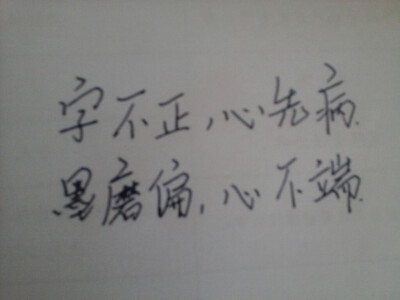 字不正,心先病.
墨磨偏,心不端.